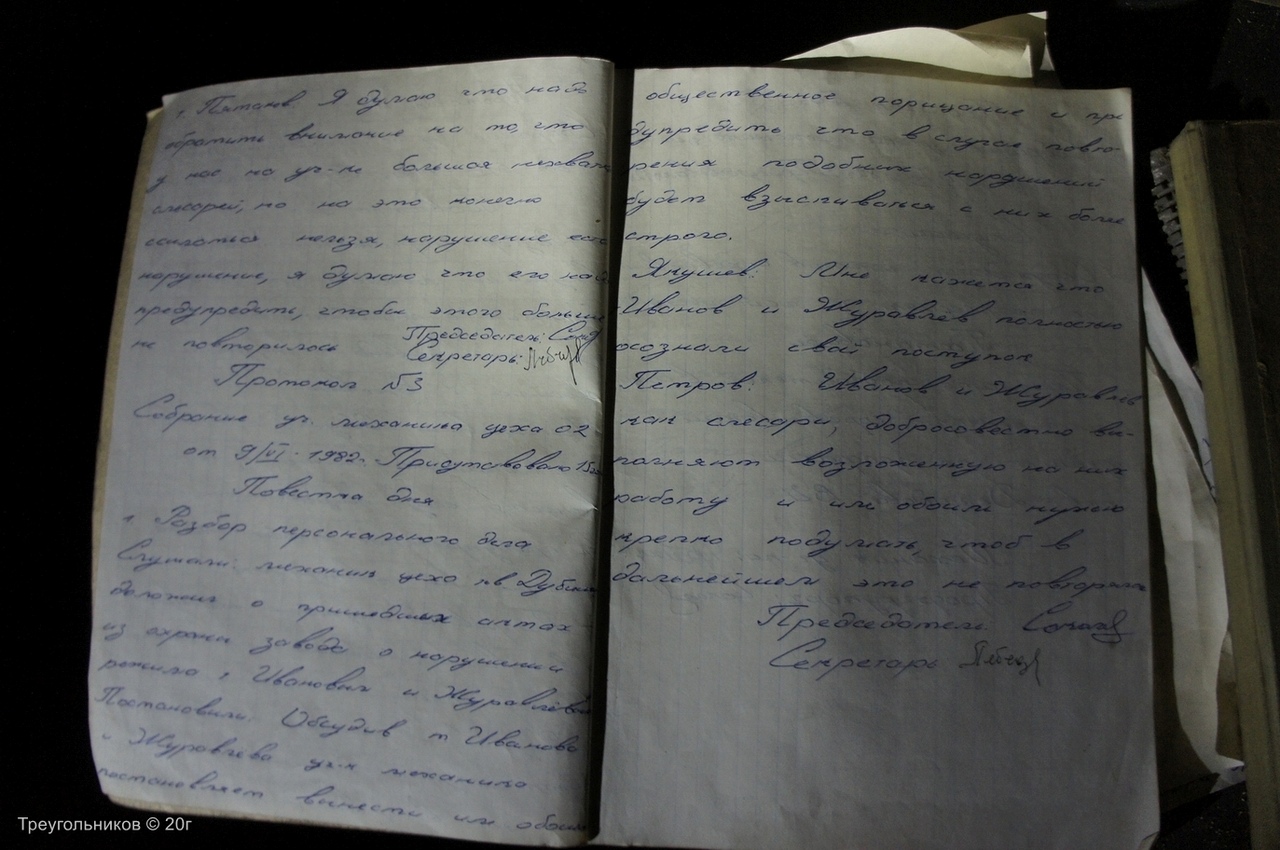 т. Пятаев Я думаю что надо
обратить внимание на то, что
у нас на уч-ке большая нехватка
слесарей, но на это конечно
ссылаться нельзя, нарушение есть
нарушение, я думаю что его надо
предупредить, чтобы этого больше
не повторилось
Председатель:
Секретарь:
Протокол №3
Собрание уч. механика цеха 02
от 9/VI. 1982г. Присутствовало 15
Повестка дня
1 Разбор персонального дела
Слушали: механик цеха
доложил о пришедших актах
из охраны завода о нарушении
режима т. Ивановым и Журавлёвым
Постановили: Обсудив т Иванова
и Журавлева уч-к механика
постановляет вынести им обоим
общественное порицание и пре
дупредить что в случае повто-
рения подобных нарушений
будет взыскиваться с них более
строго.
Янушев: Мне кажется что
Иванов и Журавлёв полностью
осознали свой поступок
Петров: Иванов и Журавлев
как слесари, добросовестно вы-
полняют возложенную на них
работу и им обоим нужно
крепко подумать, чтоб в
дальнейшем это не повторилось
Председатель:
Секретарь
Треугольников © 20г